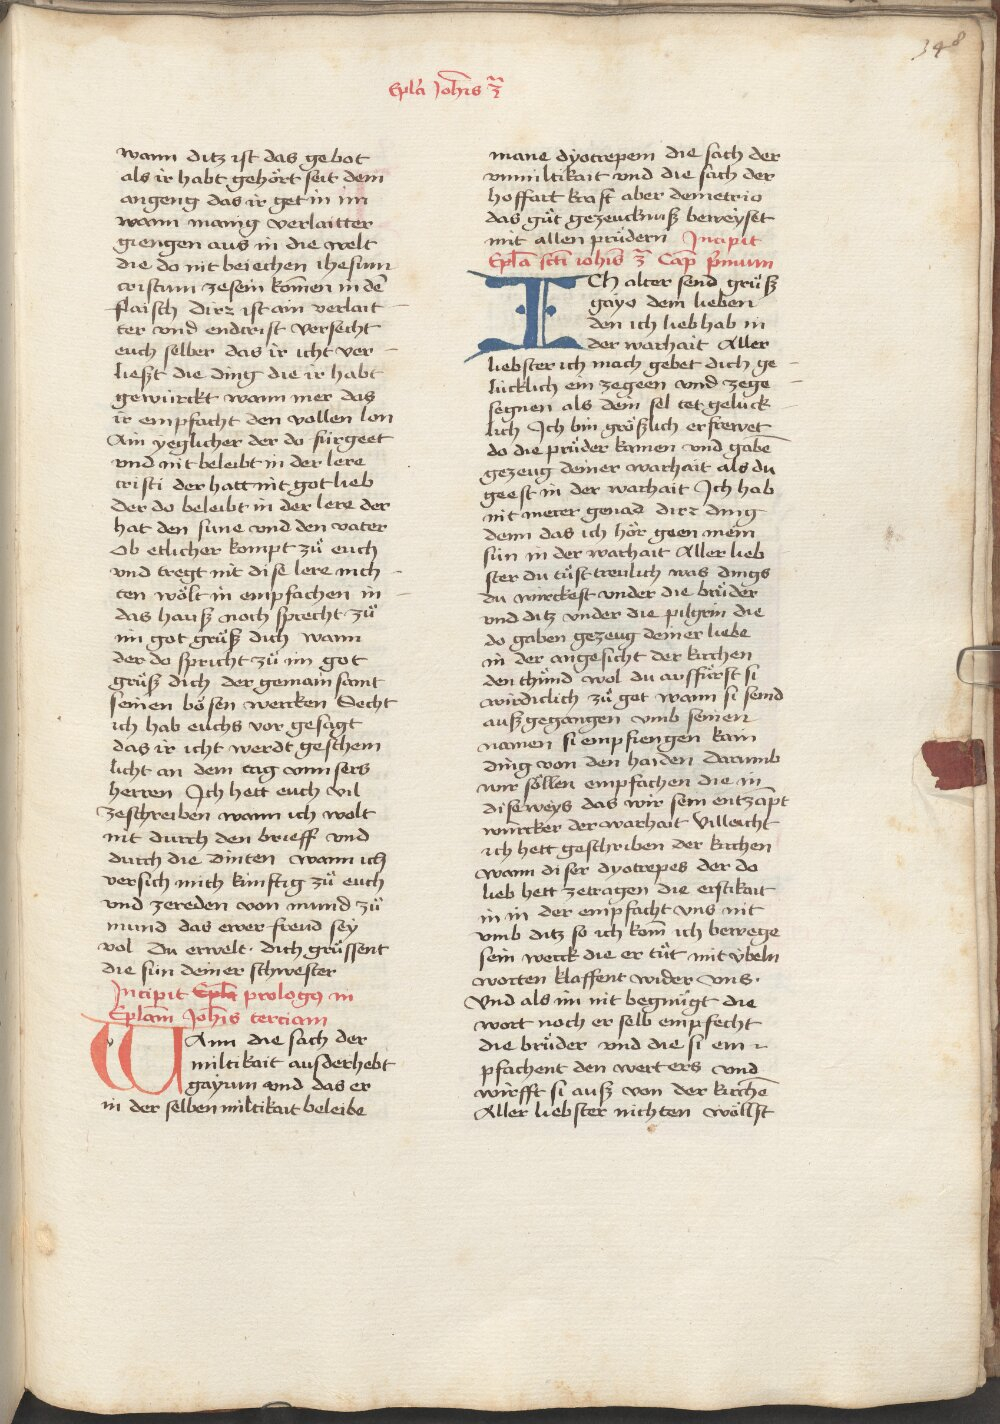 348
Epl̃a Joh̃is 3ᵃ
wann ditz ist das gebot
als ir habt gehört seit dem
angeng das ir get in im
wann manig verlaitter
giengen aus in die welt
die do nit beiechen ihesum
cristum zesein komen in dē
flaisch dirz ist ain verlait
ter vnd endcrist versecht
euch selber das ir icht ver-
lieszt die ding die ir habt
gewürckt wann mer das
ir empfacht den vollen lon
Ain yeglicher der do fürgeet
vnd nit beleibt in der lere
cristi der hatt nit got lieb
der do beleibt in der lere der
hat den sune vnd den vater
Ob etlicher kompt zů euch
vnd tregt nit dise lere nich-
ten wölt in empfachen in-
das hausz noch sprecht zů
im got grüsz dich wann
der do spricht zů im got
grüsz dich der gemainsamt
seinen bösen wercken Secht
ich hab euchs vor gesagt
das ir icht werdt geschem
licht an dem tag vnnsers
herren Ich hett euch vil
zeschreiben wann ich wolt
nit durch den brieff vnd
durch die dinten wann ich
versich mich künftig zů euch
vnd zereden von mund zů
mund das ewer freud sey
vol Du erwelt dich grüssent
die sün deiner schwester
Incipit Epl̃a prologꝰ in
Epl̃am Joh̃is terciam
WAnn die sach der
miltikait ausderhebt
gayum vnd das er
in der selben miltikait beleibe
mane dyotrepem die sach der
vnmiltikait vnd die sach der
hoffart kraft aber demetrio
das gůt gezeucknusz beweyset
mit allen prüdern Incipit
Epl̃a sc̃ti ioh̃is 3ᵃ Cap̃ p̃mum
ICh alter send grüsz
gayo dem lieben
den ich lieb hab in
der warhait Aller
liebster ich mach gebet dich ge-
lücklich ein zegeen vnd zege-
segnen als dein sel tet gelück-
lich Ich bin gröszlich erfrewet
do die prüder kamen vnd gabē
gezeug deiner warhait als du
geest in der warhait Ich hab
nit merer genad dirz ding
denn das ich hör geen mein
sün in der warhait Aller lieb
ster du tüst treulich was dings
du wirckest vnder die brüder
vnd ditz vnder die pilgrin die
do gaben gezeug deiner liebe
in der angesicht der kirchen
den thůnd wol du auffürst si
wirdiclich zů got wann si seind
ausz gegangen vmb seinen
namen si empfiengen kain
ding von den haiden Darumb
wir söllen empfachen die in
diseweys das wir sein entzāpt
würcker der warhait Villeicht
ich hett geschriben der kirchen
wann diser dyotrepes der do
lieb hett zetragen die erstikait
in in der empfacht vns nit
vmb ditz so ich kom̄ ich bewege
sein werck die er tůt mit übeln
worten klaffent wider vns.
Vnd als im nit begnügt die
wort noch er selb empfecht
die brüder vnd die si em-
pfachent den wert ers vnd
wirfft si ausz von der kirchē
Aller liebster nichten wöllst